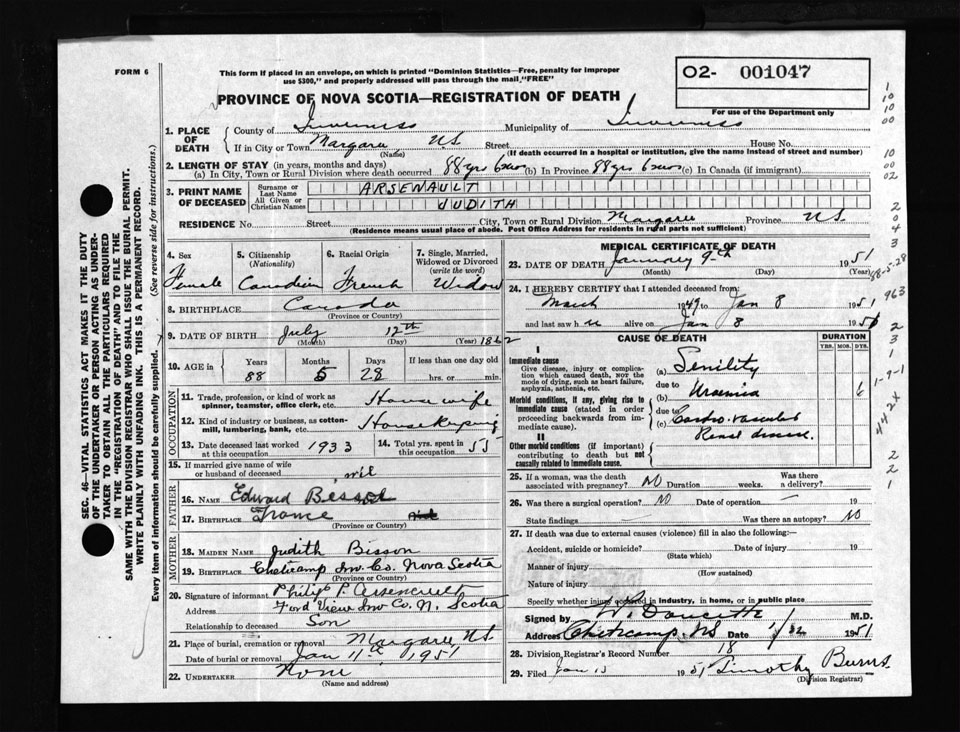 FORM 6
This form if placed in an envelope, on which is printed "Dominion Statistics—Free, penalty for improper
use $300," and properly addressed will pass through the mail "FREE"
02- 001047
For use of the Department only
PROVINCE OF NOVA SCOTIA—REGISTRATION OF DEATH
1. PLACE OF DEATH
County of Inverness Municipality of Inverness
If in City or Town Margaree NS Street House No.
(Name) (If death occurred in a hospital or institution, give the name instead of street and number)
2. LENGTH OF STAY (in years, months and days)
(a) In City, Town or Rural Division where death occurred 88 yrs 6 mos (b) In Province 88 yrs 6 mos (c) In Canada (if immigrant)
3. PRINT NAME OF DECEASED
Surname or Last Name ARSENAULT
All Given or Christian Names JUDITH
RESIDENCE No. Street City, Town or Rural Division Margaree Province NS
(Residence means usual place of abode. Post Office Address for residents in rural parts not sufficient)
4. Sex Female
5. Citizenship (Nationality) Canadian
6. Racial Origin French
7. Single, Married, Widowed or Divorced (write the word) Widow
8. BIRTHPLACE Canada
(Province or Country)
9. DATE OF BIRTH July 12th 1862
(Month) (Day) (Year)
10. AGE in Years Months Days If less than one day old
88 5 28 hrs. or min.
OCCUPATION
11. Trade, profession, or kind of work as spinner, teamster, office clerk, etc. House wife
12. Kind of industry or business, as cotton-mill, lumbering, bank, etc. House Keeping
13. Date deceased last worked at this occupation 1933
14. Total yrs. spent in this occupation 55
15. If married give name of wife or husband of deceased
FATHER
16. NAME Edward
17. BIRTHPLACE France
(Province or Country)
MOTHER
18. MAIDEN NAME Judith Bisson
19. BIRTHPLACE Cheticamp Inv. Co. Nova Scotia
(Province or Country)
20. Signature of informant Philip P. Arsenault
Address Ford View Inv Co. N. Scotia
Relationship to deceased Son
21. Place of burial, cremation or removal Margaree NS
Date of burial or removal Jan 11th 1951
22. UNDERTAKER None
(Name and address)
MEDICAL CERTIFICATE OF DEATH
23. DATE OF DEATH January 9th 1951
(Month) (Day) (Year)
24. I HEREBY CERTIFY that I attended deceased from:
March 1949 to Jan 8 1951
and last saw h alive on Jan 8 195
CAUSE OF DEATH
DURATION
YRS. MOS. DYS.
I
Immediate cause
Give disease, injury or complication which caused death, NOT the mode of dying, such as heart failure, asphyxia, asthenia, etc.
(a) Senility
due to
Morbid conditions, if any, giving rise to immediate cause (stated in order proceeding backwards from immediate cause).
(b) Uraemia 6
due to
(c) Cardio-vascular
Renal disease.
II
Other morbid conditions (if important) contributing to death but not causally related to immediate cause.
25. If a woman, was the death associated with pregnancy? NO Duration weeks. Was there a delivery?
26. Was there a surgical operation? NO Date of operation — 19
State findings — Was there an autopsy? NO
27. If death was due to external causes (violence) fill in also the following:
Accident, suicide or homicide? Date of injury 19
(State which)
Manner of injury
(How sustained)
Nature of injury
Specify whether injury occurred in industry, in home, or in public place
Signed by W. Doucette M.D.
Address Cheticamp, NS Date 1951
28. Division Registrar's Record Number 18
29. Filed Jan 15 1951 Timothy Burns
(Division Registrar)
SEC. 46—VITAL STATISTICS ACT MAKES IT THE DUTY
OF THE UNDERTAKER OR PERSON ACTING AS UNDER-
TAKER TO OBTAIN ALL THE PARTICULARS REQUIRED
IN THE "REGISTRATION OF DEATH" AND TO FILE THE
SAME WITH THE DIVISION REGISTRAR WHO SHALL ISSUE THE BURIAL PERMIT.
WRITE PLAINLY WITH UNFADING INK. THIS IS A PERMANENT RECORD.
Every item of information should be carefully supplied. (See reverse side for instructions.)
1
10
10
00
10
00
02
2
0
4
3
68-5-28
963
2
3
1
1-9-1
2
2
1